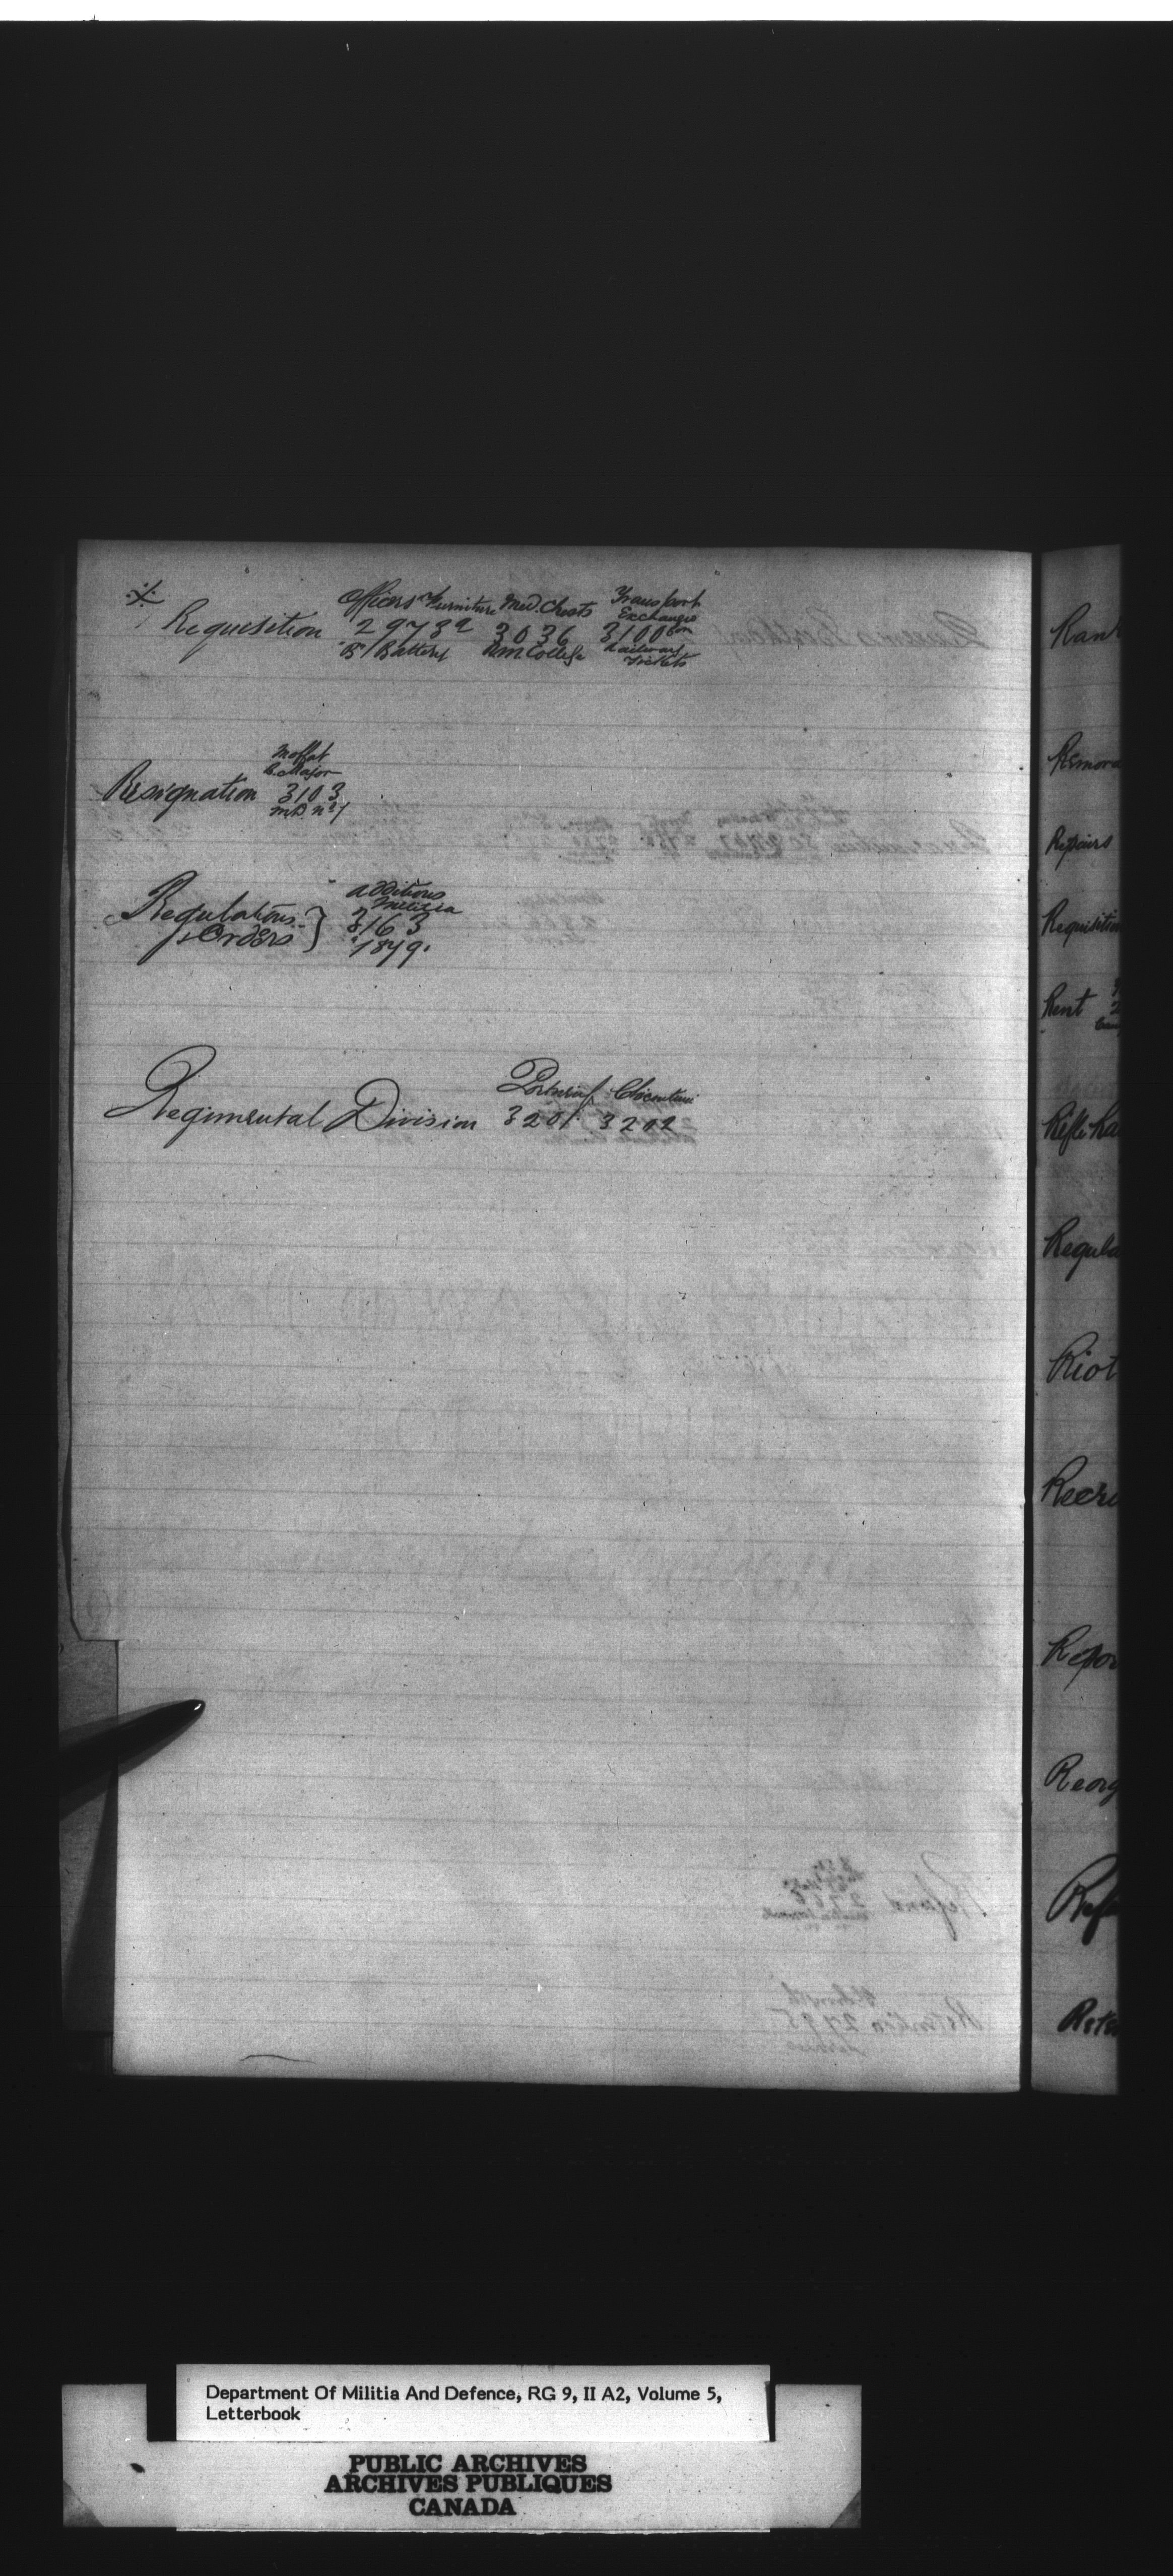 Officers Furniture Med. Chests Transport
Exchange
for
Requisition 2973a 3036 3100
"B" Battery R.M. College Railway
Tickets
Moffat
B. Major
Resignation 3103
M.D. No 7
Additions
Militia
Regulations } 3163
& Orders 1879.
Portneuf Chicoutimi
Regimental Division 3201 3202
Rank
Remova
Repairs
Requisition
Rent
Rifle Ra
Regula
Riot
Recru
Repor
Reorg
Department Of Militia And Defence, RG 9, II A2, Volume 5,
Letterbook
PUBLIC ARCHIVES
ARCHIVES PUBLIQUES
CANADA